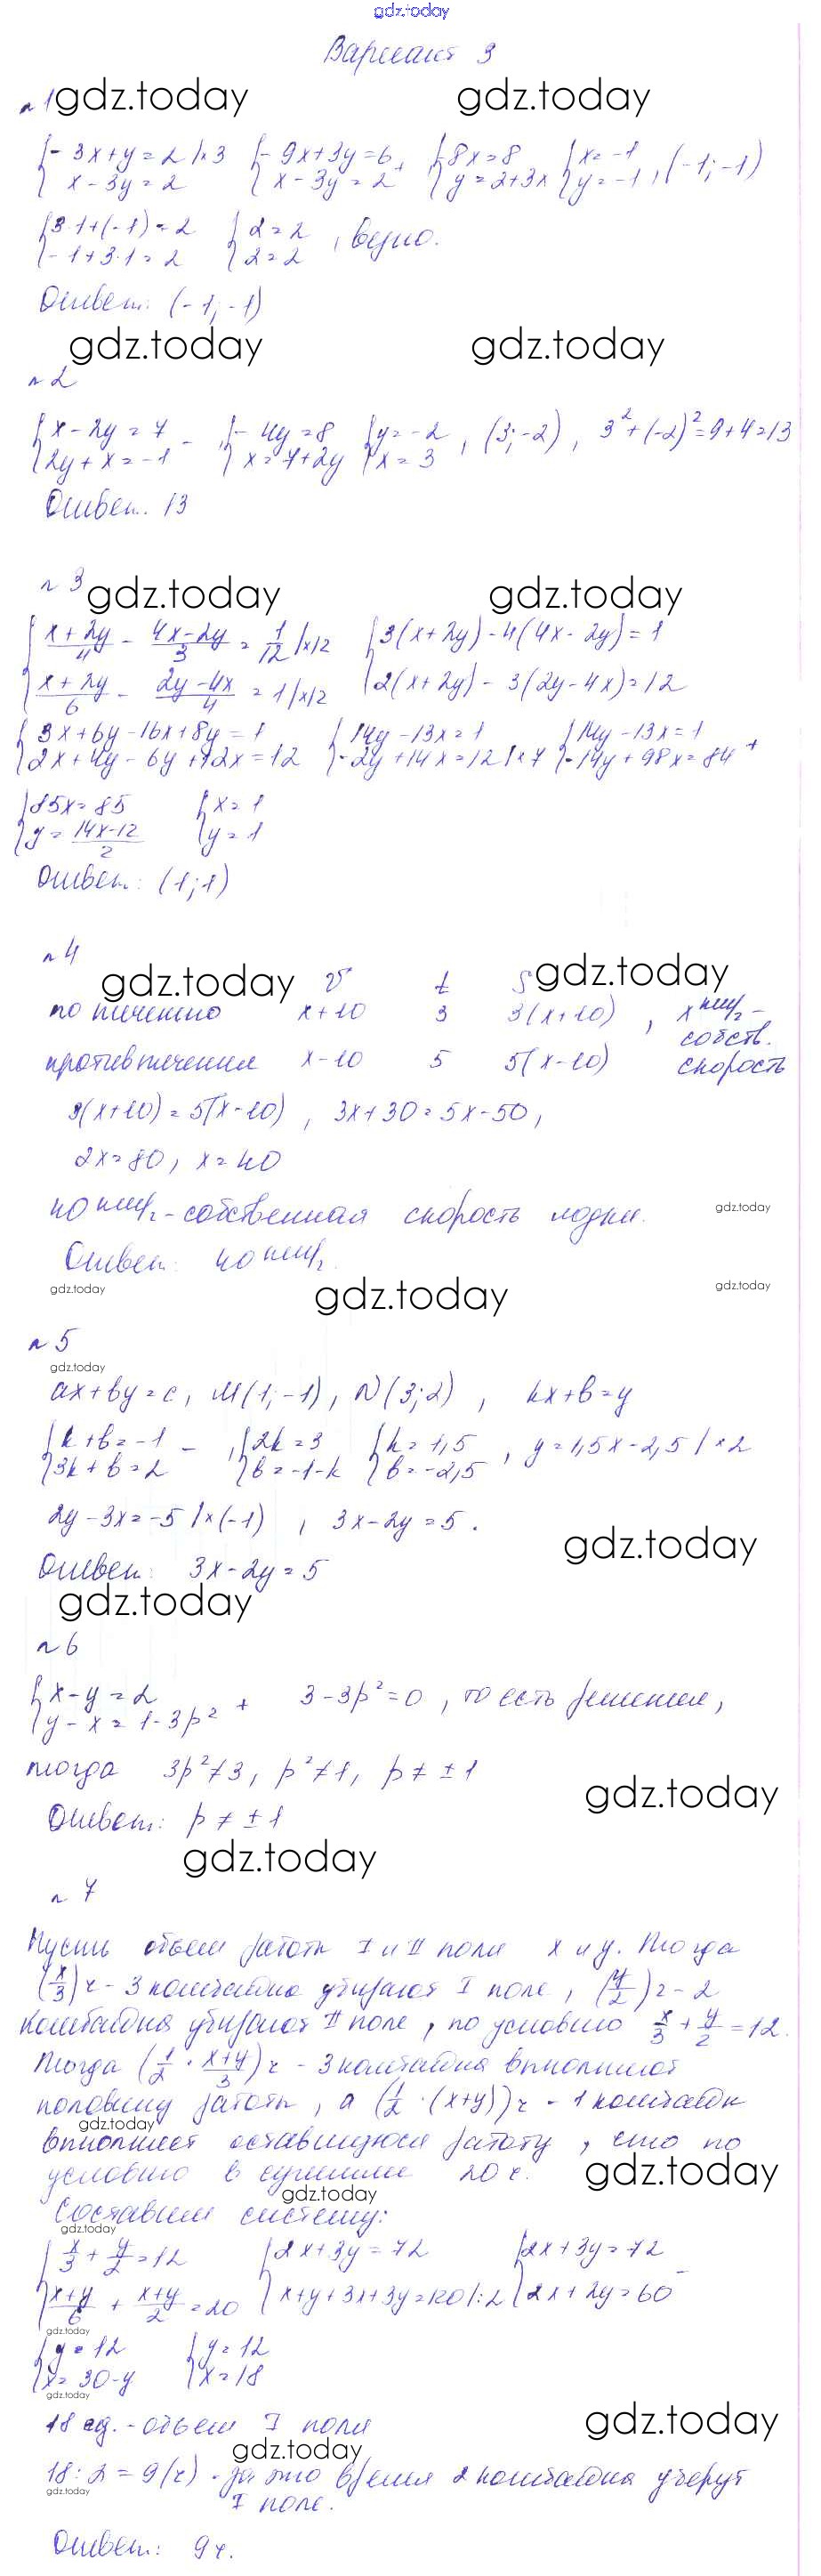 gdz.today
Вариант 3
n 1 gdz.today gdz.today
{ - 3x+y=2 |×3 { - 9x+3y=6 + { -8x=8 { x=-1
{ x-3y=2 { x-3y=2 { y=2+3x { y=-1 , (-1;-1)
{ 3·1+(-1)=2 { 2=2
{ -1+3·1=2 { 2=2 , верно.
Ответ: (-1;-1)
gdz.today gdz.today
n 2
{ x-2y=7 - { -4y=8 { y=-2 , (3;-2) , 3²+(-2)²=9+4=13
{ 2y+x=-1 { x=7+2y { x=3
Ответ. 13
n 3 gdz.today gdz.today
{ (x+2y)/4 - (4x-2y)/3 = 1/12 |×12 { 3(x+2y)-4(4x-2y)=1
{ (x+2y)/6 - (2y-4x)/4 = 1 |×12 { 2(x+2y)-3(2y-4x)=12
{ 3x+6y-16x+8y=1 { 14y-13x=1 { 14y-13x=1 +
{ 2x+4y-6y+12x=12 { -2y+14x=12 |×7 { -14y+98x=84
{ 85x=85 { x=1
{ y=(14x-12)/2 { y=1
Ответ: (1;1)
n 4
gdz.today v t S gdz.today
по течению x+10 3 3(x+10) , x км/ч -
собств.
против течения x-10 5 5(x-10) скорость
3(x+10)=5(x-10) , 3x+30=5x-50,
2x=80, x=40
40 км/ч - собственная скорость лодки. gdz.today
Ответ: 40 км/ч.
gdz.today gdz.today gdz.today
n 5
gdz.today
ax+by=c, M(1;-1), N(3;2) , kx+b=y
{ k+b=-1 - { 2k=3 { k=1,5 , y=1,5x-2,5 |×2
{ 3k+b=2 { b=-1-k { b=-2,5
2y-3x=-5 |×(-1) , 3x-2y=5.
gdz.today
Ответ: 3x-2y=5
gdz.today
n 6
{ x-y=2 + 3-3p²=0 , то есть решения,
{ y-x=1-3p²
тогда 3p²≠3, p²≠1, p≠±1
gdz.today
Ответ: p≠±1
gdz.today
n 7
Пусть объем работы I и II поли x и y. Тогда
(x/3) ч - 3 комбайна убирают I поле, (y/2) ч - 2
комбайна убирают II поле, по условию x/3 + y/2 = 12.
Тогда (1/2 · (x+y)/3) ч - 3 комбайна выполняют
половину работы, а (1/2 · (x+y)) ч - 1 комбайн
gdz.today
выполняет оставшуюся работу, что по
условию в сумме 20 ч. gdz.today
gdz.today
Составим систему:
gdz.today
{ x/3 + y/2 = 12 { 2x+3y=72 { 2x+3y=72 -
{ (x+y)/6 + (x+y)/2 = 20 { x+y+3x+3y=120 |:2 { 2x+2y=60
gdz.today
{ y=12 { y=12
{ x=30-y { x=18
gdz.today
18 ед. - объем I поля gdz.today
gdz.today
18:2=9(ч) - за это время 2 комбайна уберут
gdz.today
I поле.
Ответ: 9 ч.